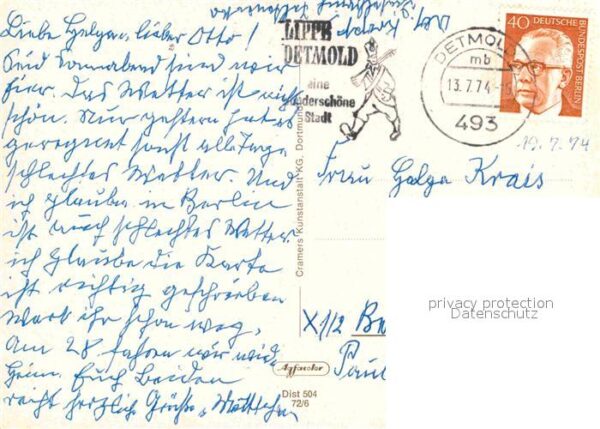 Liebe Helga, lieber Otto!
Seid Sonnabend sind wir
hier. Das Wetter ist nicht
schön. Nur gestern hat es
geregnet sonst alle Tage
schlechtes Wetter. Und
ich glaube in Berlin
ist auch schlechtes Wetter.
ich glaube die Karte
ist richtig geschrieben
Werk ihr schon weg,
Am 28 fahren wir wieder
Heim. Euch beiden
recht herzliche Grüße
LIPPE
DETMOLD
eine
wunderschöne
Stadt
DETMOLD
mb
13.7.74
493
40 DEUTSCHE
BUNDESPOST BERLIN
19.7.74
Frau Helga Krais
X1/2
Cramers Kunstanstalt KG, Dortmund
Agfacolor
Dist 504
72/6
privacy protection
Datenschutz